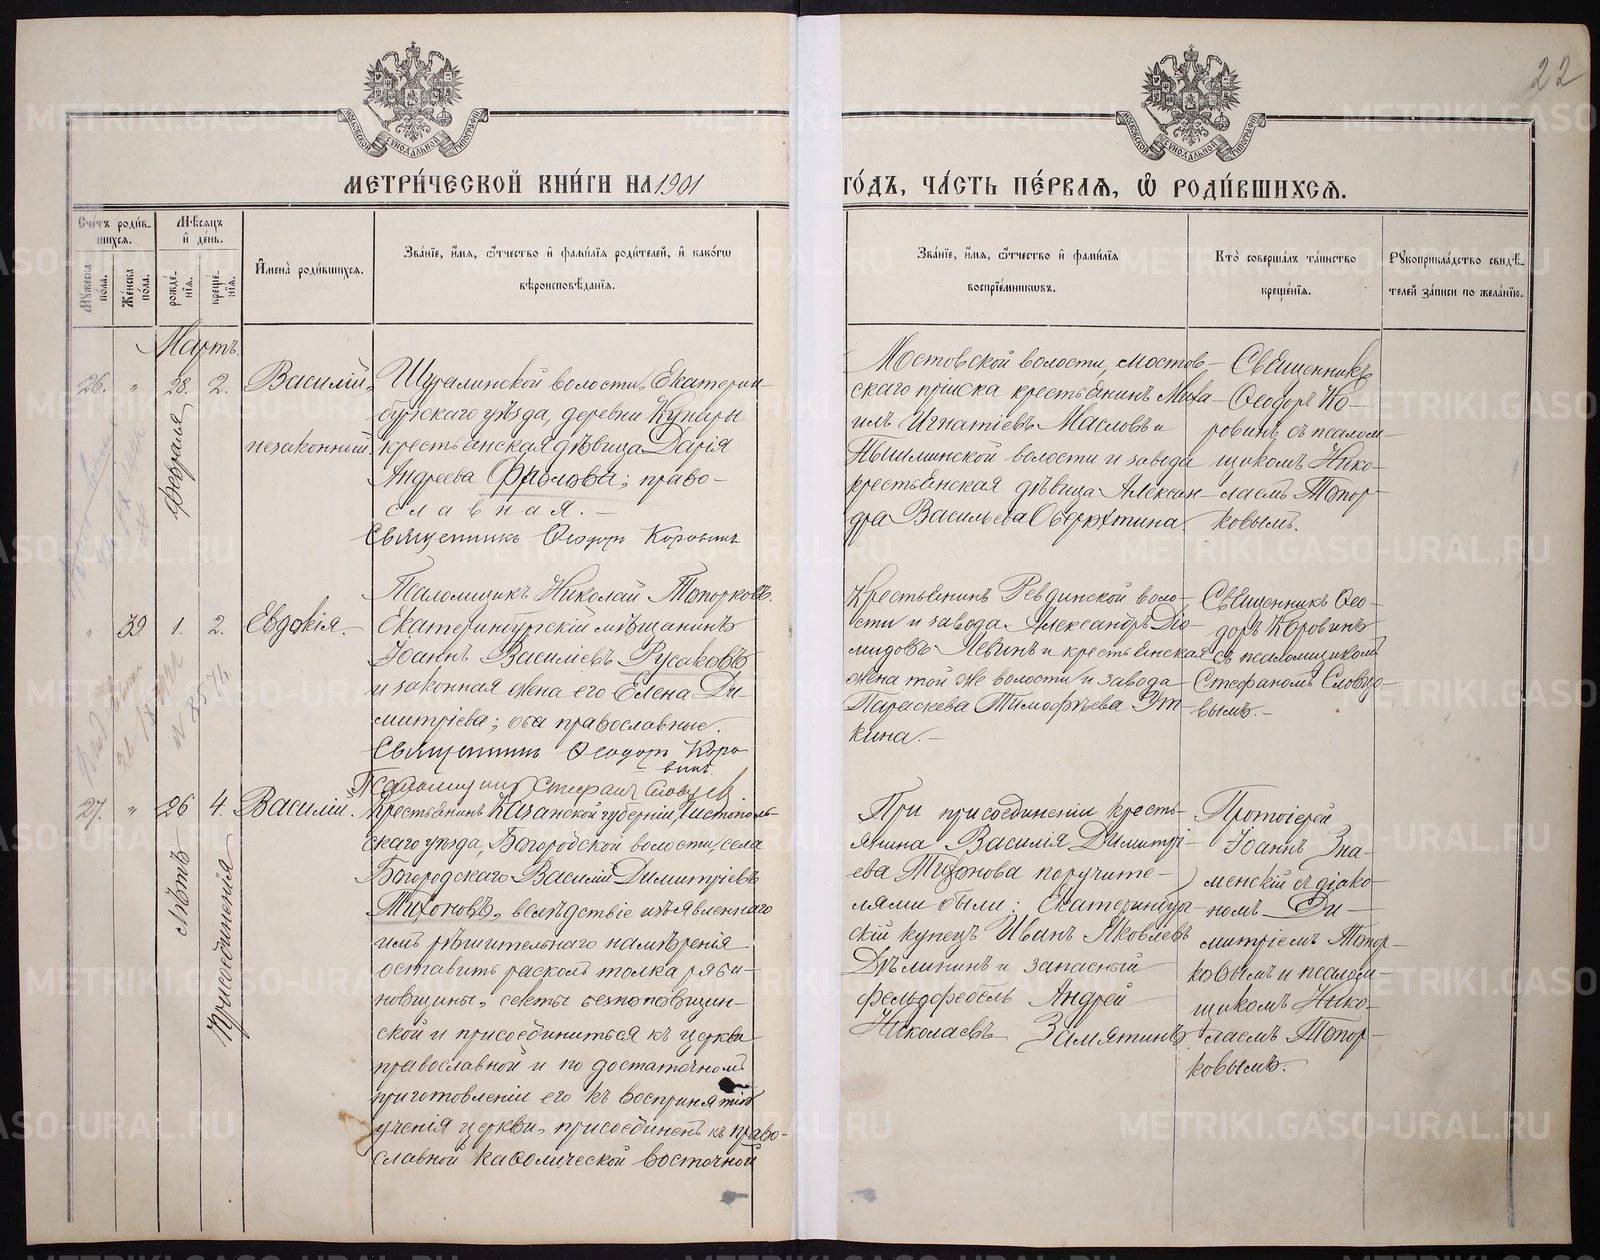 22
МОСКОВСКОЙ СѴНОДАЛЬНОЙ ТИПОГРАФІИ
МОСКОВСКОЙ СѴНОДАЛЬНОЙ ТИПОГРАФІИ
МЕТРИ́ЧЕСКОЙ КНИ́ГИ НА 1901
ГО́ДЪ, ЧА́СТЬ ПЕ́РВАѦ, Ѡ҆ РОДИ́ВШИХСѦ.
Сче́тъ роди́в-
шихся.
Мѣсяцъ
и҆ день.
Мꙋжеска по́ла.
Же́нска по́ла.
рожде́-нїѧ.
креще́-нїѧ.
И҆мена̀ роди́вшихся.
Зва́нїе, и҆́мѧ, ѻ҆́тчество и҆ фами́лїѧ роди́телей, и҆ како́гѡ
вѣроисповѣ́данїѧ.
Зва́нїе, и҆́мѧ, ѻ҆́тчество и҆ фами́лїѧ
воспрїе́мникѡвъ.
Кто̀ соверша́лъ та́инство
креще́нїѧ.
Рꙋкоприкла́дство свидѣ́-
телей за́писи по жела́нїю.
Мартъ.
26. " 28. 2.
Февраля
Василій,
незаконный
Шуралинской волости, Екатерин-
бургскаго уѣзда, деревни Кунары
крестьянская дѣвица Дарія
Андреева Фролова; право-
славная. –
Священникъ Ѳеодоръ Коровинъ
Псаломщикъ Николай Топорковъ.
Мостовской волости, Мостов-
скаго пріиска крестьянинъ Миха-
илъ Игнатіевъ Масловъ и
Пышминской волости и завода
крестьянская дѣвица Алексан-
дра Васильева Оберюхтина.
Священникъ
Ѳеодоръ Ко-
ровинъ съ псалом-
щикомъ Нико-
лаемъ Топор-
ковымъ.
" 39 1. 2.
Евдокія.
Екатеринбургскій мѣщанинъ
Іоаннъ Василіевъ Русаковъ
и законная жена его Елена Ди-
митріева; оба православные.
Священникъ Ѳеодоръ Коро-
винъ.
Псаломщикъ Стефанъ Словцов
Крестьянинъ Ревдинской воло-
сти и завода Александръ Діо-
мидовъ Левинъ и крестьянская
жена той же волости и завода
Параскева Тимофѣева Ут-
кина. –
Священникъ Ѳео-
доръ Коровинъ
съ псаломщикомъ
Стефаномъ Словцо-
вымъ. –
27. " 26 4.
лѣтъ
Присоединенія
Василій.
Крестьянинъ Казанской губерніи, Чистополь-
скаго уѣзда, Богородской волости, села
Богородскаго Василій Димитріевъ
Тихоновъ, вслѣдствіе изъявленнаго
имъ рѣшительнаго намѣренія
оставить расколъ толка ряби-
новщины, секты безпоповщин-
ской и присоединиться къ церкви
православной и по достаточномъ
приготовленіи его къ воспринятію
ученія церкви, присоединенъ къ право-
славной каѳолической восточной
При присоединеніи кресть-
янина Василія Димитрі-
ева Тихонова поручите-
лями были: Екатеринбург-
скій купецъ Иванъ Яковлевъ
Дѣлининъ и запасный
фельдфебель Андрей
Николаевъ Замятинъ
Протоіерей
Іоаннъ Зна-
менскій съ діако-
номъ Ди-
митріемъ Топор-
ковымъ и псалом-
щикомъ Нико-
лаемъ Топор-
ковымъ.